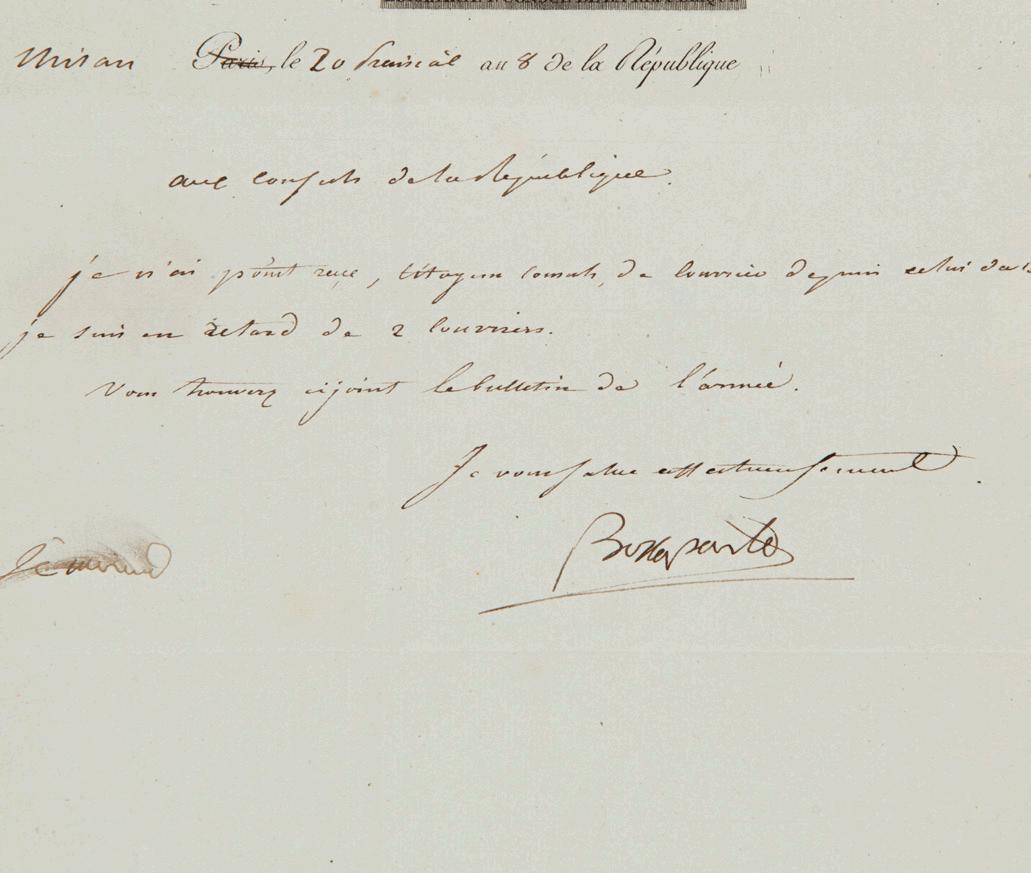 PREMIER CONSUL DE LA RÉPUBLIQUE
Milan Paris, le 20 prairial an 8 de la République
aux consuls de la République.
je n'ai point reçu, citoyens consuls, de courrier depuis celui du
je suis en retard de 2 courriers.
Vous trouverez cijoint le bulletin de l'armée.
Je vous salue affectueusement
Bonaparte